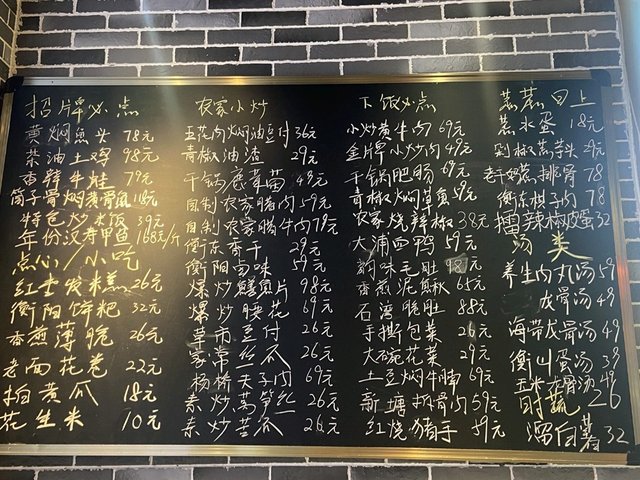 招牌必点
黄焖鱼头 78元
茶油土鸡 98元
香辣牛蛙 79元
筒子骨焖黄骨鱼 118元
特色炒米饭 39元
年份汉寿甲鱼 168元/斤
点心/小吃
红枣发米糕 26元
衡阳饼粑 32元
香煎薄脆 26元
老面花卷 22元
拍黄瓜 18元
花生米 10元
农家小炒
五花肉焖油豆付 36元
青椒油渣 29元
干锅 49元
自制农家腊肉 59元
自制农家腊牛肉 79元
衡东香干 29元
衡阳卤味 59元
爆炒鳝鱼片 98元
爆炒腰花 69元
草市豆付 26元
家常丝瓜 26元
杨桥夫子肉 69元
素炒莴笋丝 26元
素炒苦瓜 26元
下饭必点
小炒黄牛肉 69元
金牌小炒肉 49元
干锅肥肠 69元
青椒焖草鱼 59元
农家烧辣椒 38元
大浦血鸭 59元
毛肚 98元
香煎泥鳅 65元
石湾脆肚 88元
手撕包菜 26元
大碗花菜 29元
土豆焖牛腩 69元
新塘拆骨肉 59元
红烧猪手 59元
蒸蒸日上
蒸水蛋 18元
剁椒蒸芋头 29元
老干妈蒸排骨 78
衡东棋子肉 78
擂辣椒皮蛋 32
汤类
养生肉丸汤 59
龙骨汤 49
海带龙骨汤 49
衡山蛋汤 39
玉米龙骨汤 49
时蔬 26
溜白 32